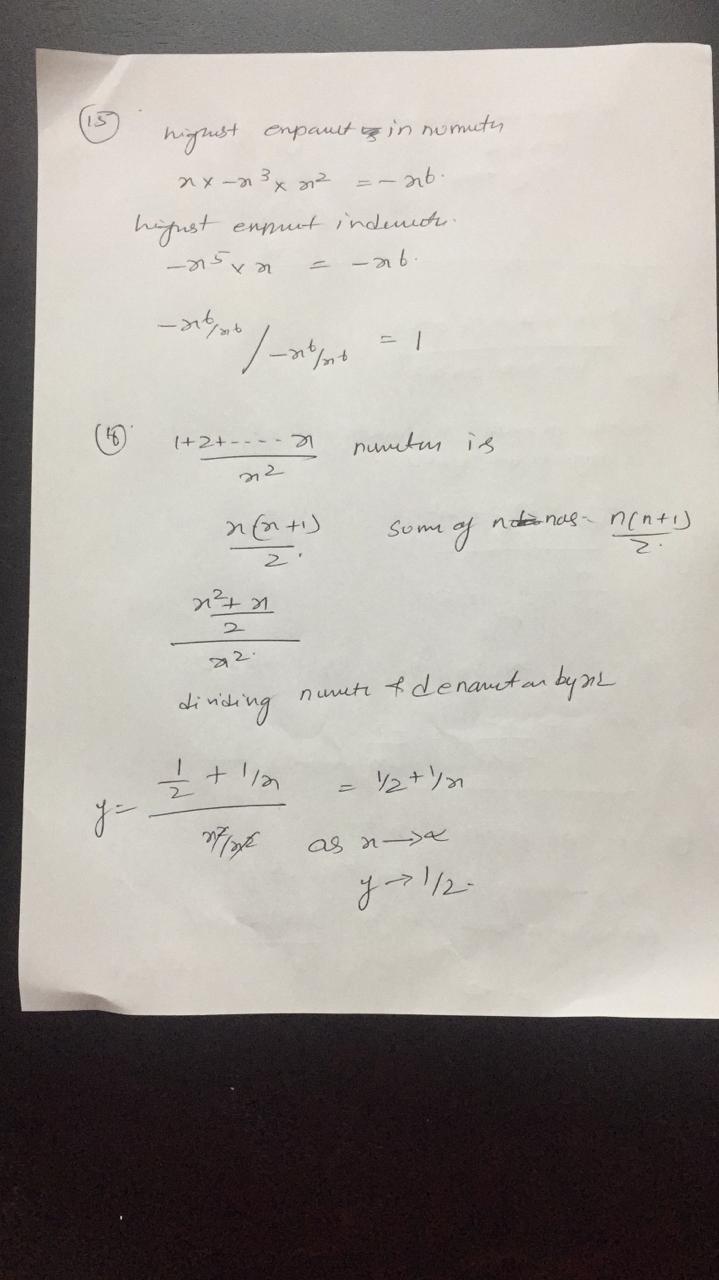 (15) highest exponent in numutr
x × -x³ × x² = -x6.
highest exponent indenutr.
-x⁵ × x = -x6.
-x⁶/x⁶ / -x⁶/x⁶ = 1
(18) 1+2+----x / x² numeter is
x(x+1) / 2. sum of n nos- n(n+1) / 2.
x²+x / 2 / x².
dividing numetr & denametar by x2
y = 1/2 + 1/x / x²/x² = 1/2+1/x
as x→∝
y → 1/2-